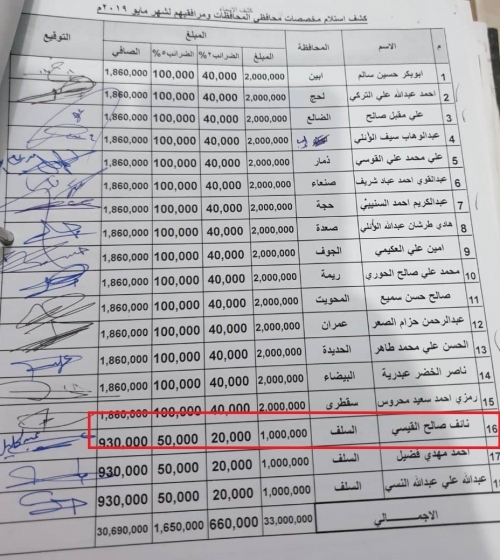 كشف استلام مخصصات محافظي المحافظات ومرافقيهم لشهر مايو ٢٠١٩م
م الاسم المحافظة المبلغ التوقيع
المبلغ الضرائب٢% الضرائب٥% الصافي
1 ابوبكر حسين سالم ابين 2,000,000 40,000 100,000 1,860,000
2 احمد عبدالله علي التركي لحج 2,000,000 40,000 100,000 1,860,000
3 علي مقبل صالح الضالع 2,000,000 40,000 100,000 1,860,000
4 عبدالوهاب سيف الؤلي 2,000,000 40,000 100,000 1,860,000
5 علي محمد علي القوسي ذمار 2,000,000 40,000 100,000 1,860,000
6 عبدالقوي احمد عباد شريف صنعاء 2,000,000 40,000 100,000 1,860,000
7 عبدالكريم احمد السنيني حجة 2,000,000 40,000 100,000 1,860,000
8 هادي طرشان عبدالله الؤلي صعدة 2,000,000 40,000 100,000 1,860,000
9 امين علي العكيمي الجوف 2,000,000 40,000 100,000 1,860,000
10 محمد علي صالح الحوري ريمة 2,000,000 40,000 100,000 1,860,000
11 صالح حسن سميع المحويت 2,000,000 40,000 100,000 1,860,000
12 عبدالرحمن حزام الصعر عمران 2,000,000 40,000 100,000 1,860,000
13 الحسن علي محمد طاهر الحديدة 2,000,000 40,000 100,000 1,860,000
14 ناصر الخضر عبدربة البيضاء 2,000,000 40,000 100,000 1,860,000
15 رمزي احمد سعيد محروس سقطرى 2,000,000 40,000 100,000 1,860,000
16 نائف صالح القيسي السلف 1,000,000 20,000 50,000 930,000
17 احمد مهدي فضيل السلف 1,000,000 20,000 50,000 930,000
عبدالله علي عبدالله النسي السلف 1,000,000 20,000 50,000 930,000
الاجمـــــــالي 33,000,000 660,000 1,650,000 30,690,000